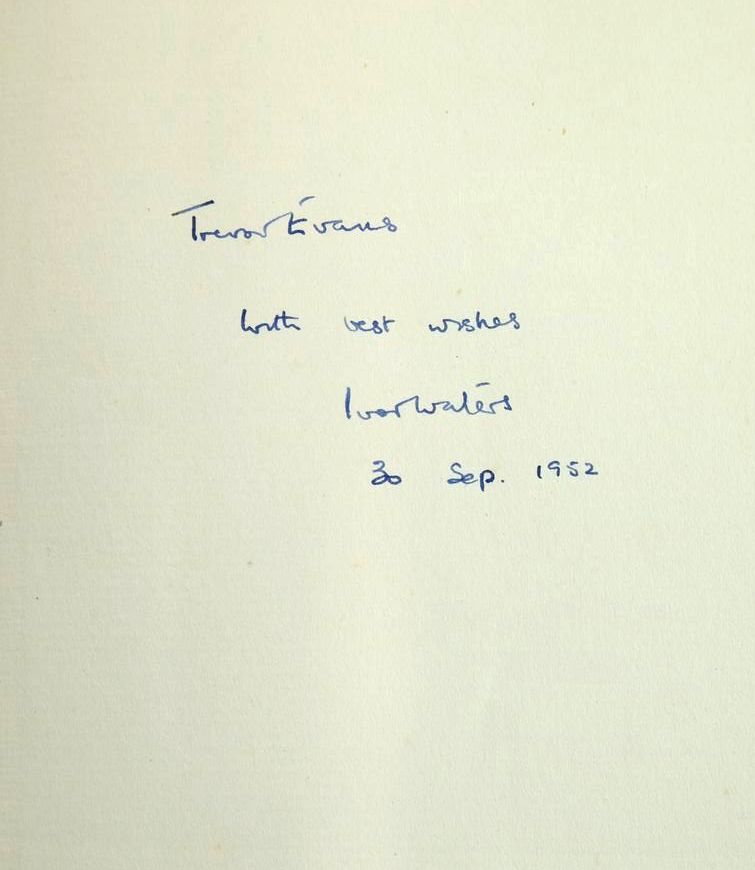 Trevor Evans
with best wishes
Ivor Waters
30 Sep. 1952